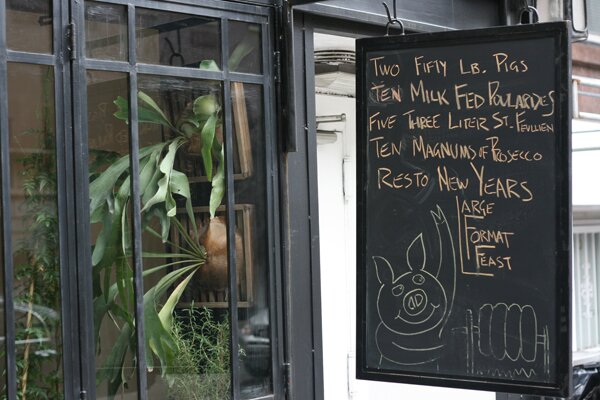 TWO FIFTY LB. PIGS
TEN MILK FED POULARDES
FIVE THREE LITER ST. FEUILLIEN
TEN MAGNUMS OF PROSECCO
RESTO NEW YEARS
LARGE
FORMAT
FEAST